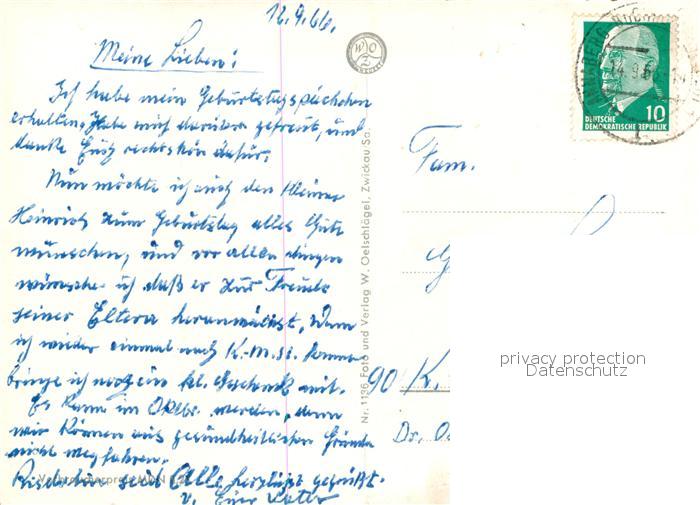 12.9.66.
Meine Lieben!
Ich habe mein Geburtstagspäckchen
erhalten. Habe mich darüber gefreut, und
danke Euch rechtschön dafür.
Nun möchte ich auch den kleinen
Heinrich zum Geburtstag alles Gute
wünschen, und vor allen dingen
wünsche ich daß er zur Freude
seiner Eltern heranwächst. Wenn
ich wieder einmal nach K.-M.-St. komme
bringe ich noch ein kl. Geschenk mit.
Es kann im Oktbr. werden, denn
wir können aus gesundheitlichen Gründen
nicht wegfahren.
Bis dahin seid Alle herzlichst gegrüßt.
v. Euer Vater
WOZ
Nr. 1136 Foto und Verlag W. Oelschlägel, Zwickau Sa.
DEUTSCHE
DEMOKRATISCHE REPUBLIK
10
Fam.
G
90 K.
Dr. O
privacy protection
Datenschutz